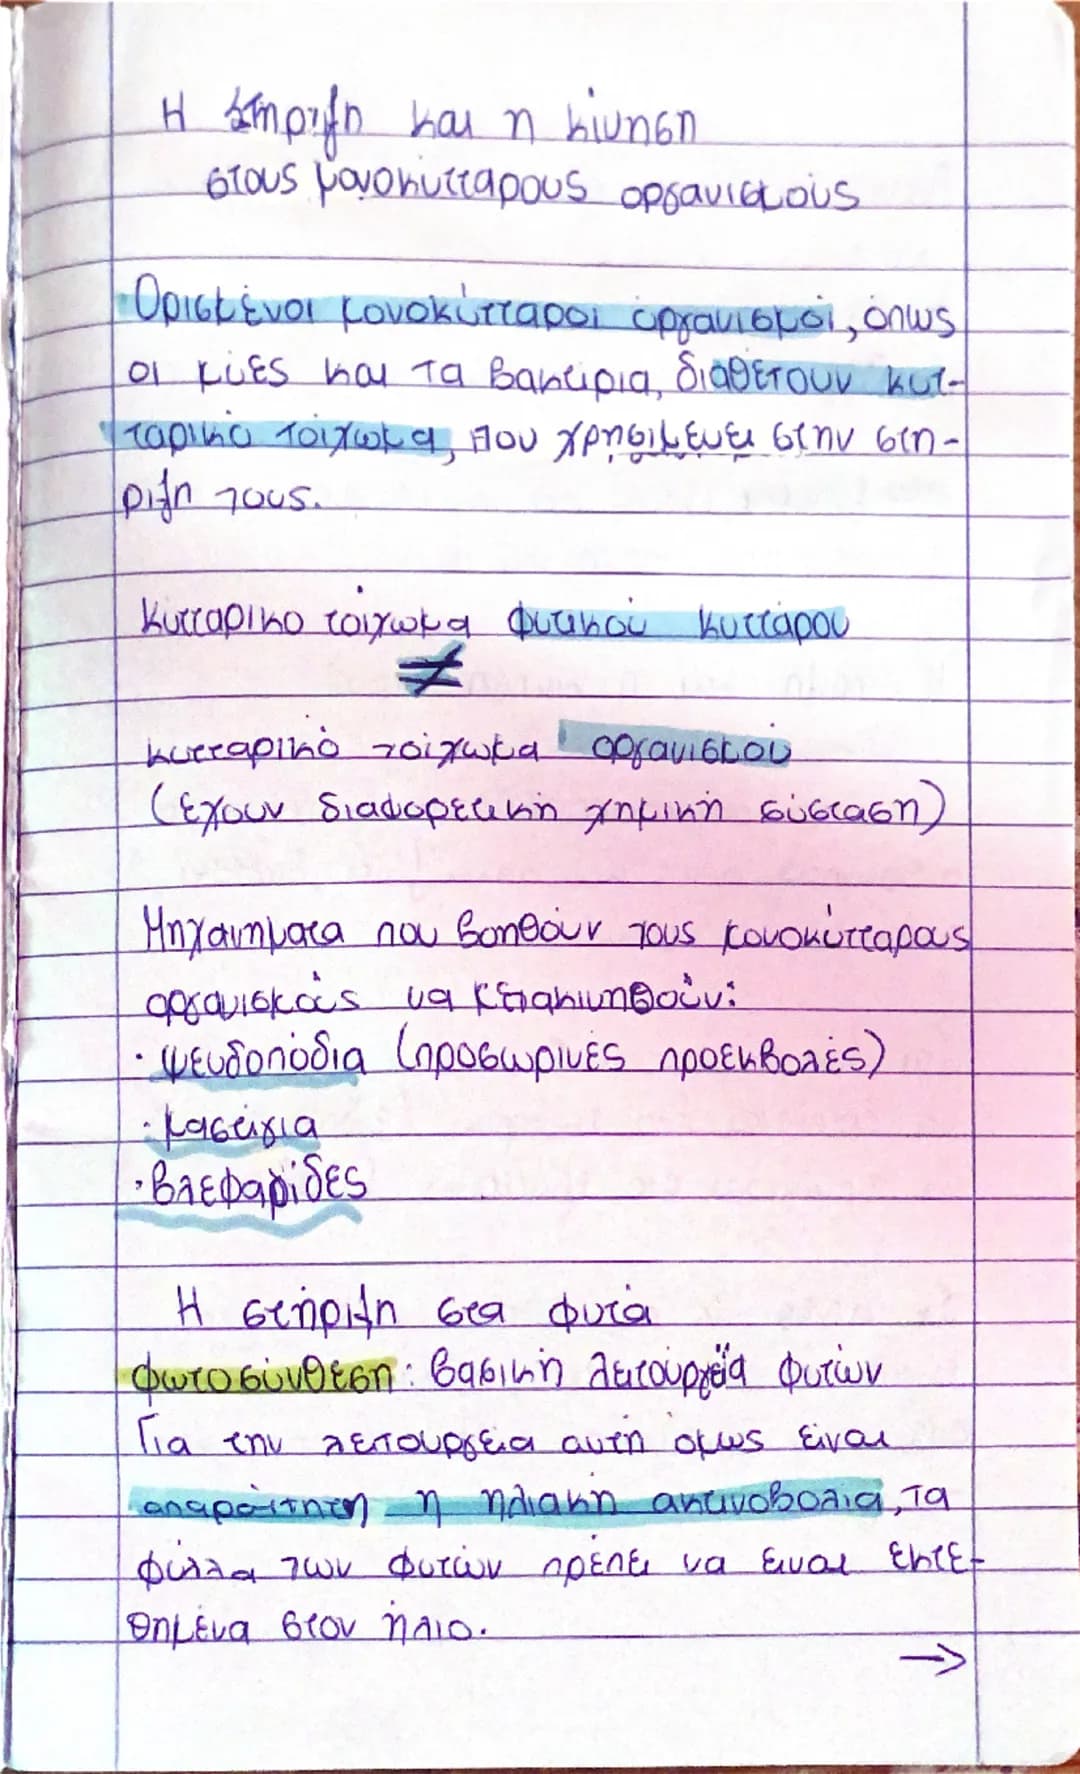 Η στήριξη και η κίνηση
στους μονοκύτταρους οργανισμούς
Ορισμένοι μονοκύτταροι οργανισμοί, όπως
οι μύες και τα βακτίρια, διαθέτουν κυτ-
ταρικό τοίχωμα, που χρησιμεύει στην στή-
ριξη τους.
Κυτταρικό τοίχωμα φυτικού κυττάρου
≠
κυτταρικό τοίχωμα οργανισμού
(έχουν διαφορετική χημική σύσταση)
Μηχανήματα που βοηθούν τους μονοκύτταρους
οργανισμούς να μετακινηθούν:
· ψευδοπόδια (προσωρινές προεκβολές)
· μαστίγια
· βλεφαρίδες
Η στήριξη στα φυτά
φωτοσύνθεση: βασική λειτουργεία φυτών
Για την λειτουργεία αυτή όμως είναι
απαραίτητη η ηλιακή ακτινοβολία, τα
φύλλα των φυτών πρέπει να είναι εκτε-
θημένα στον ήλιο.
→